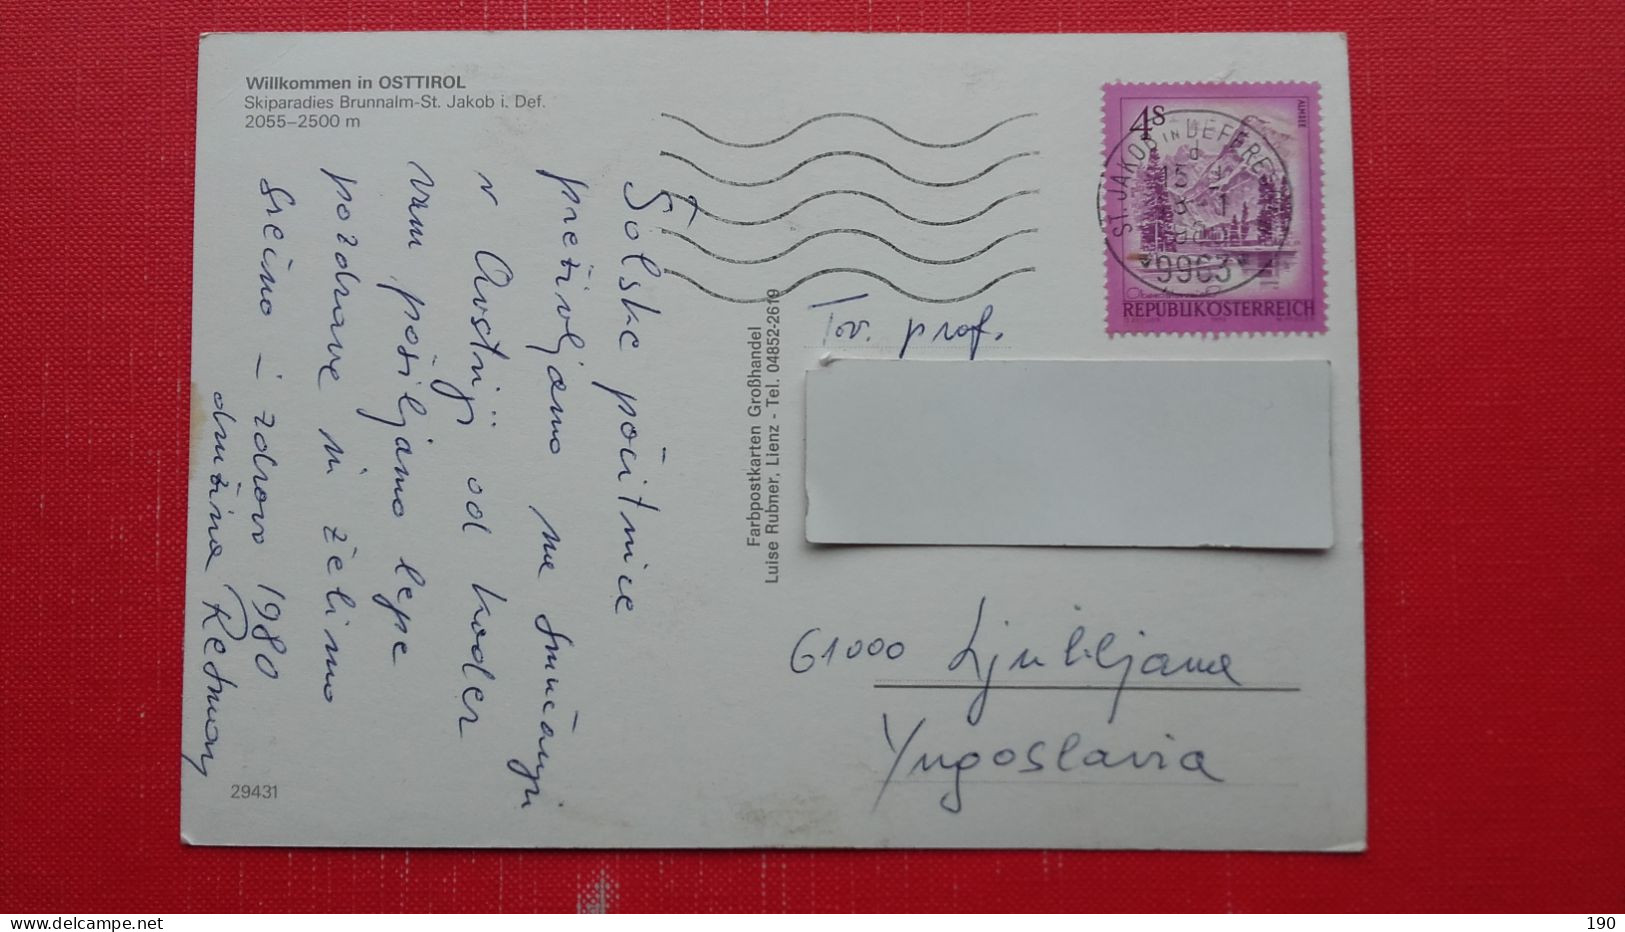 Willkommen in OSTTIROL
Skiparadies Brunnalm-St. Jakob i. Def.
2055–2500 m
Šolske počitnice
preživljamo na smučanju
v Avstriji od koder
vam pošiljamo lepe
pozdrave in želimo
srečno - zdravo 1980
družina
29431
Farbpostkarten Großhandel
Luise Rubner, Lienz - Tel. 04852-2619
4S
ALMSEE
REPUBLIK ÖSTERREICH
ST. JAKOB IN DEFEREGGEN
9963
Tov. prof.
61000 Ljubljana
Yugoslavia
delcampe.net
190